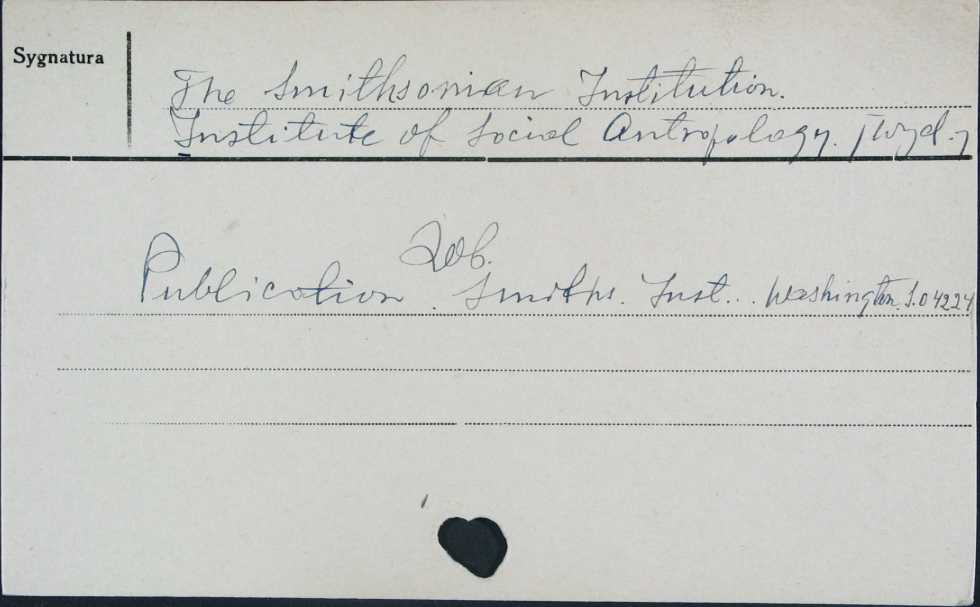 Sygnatura
The Smithsonian Institution.
Institute of Social Antropology. [Wyd.]
Zob.
Publication. Smiths. Inst.. Washington. S.04224